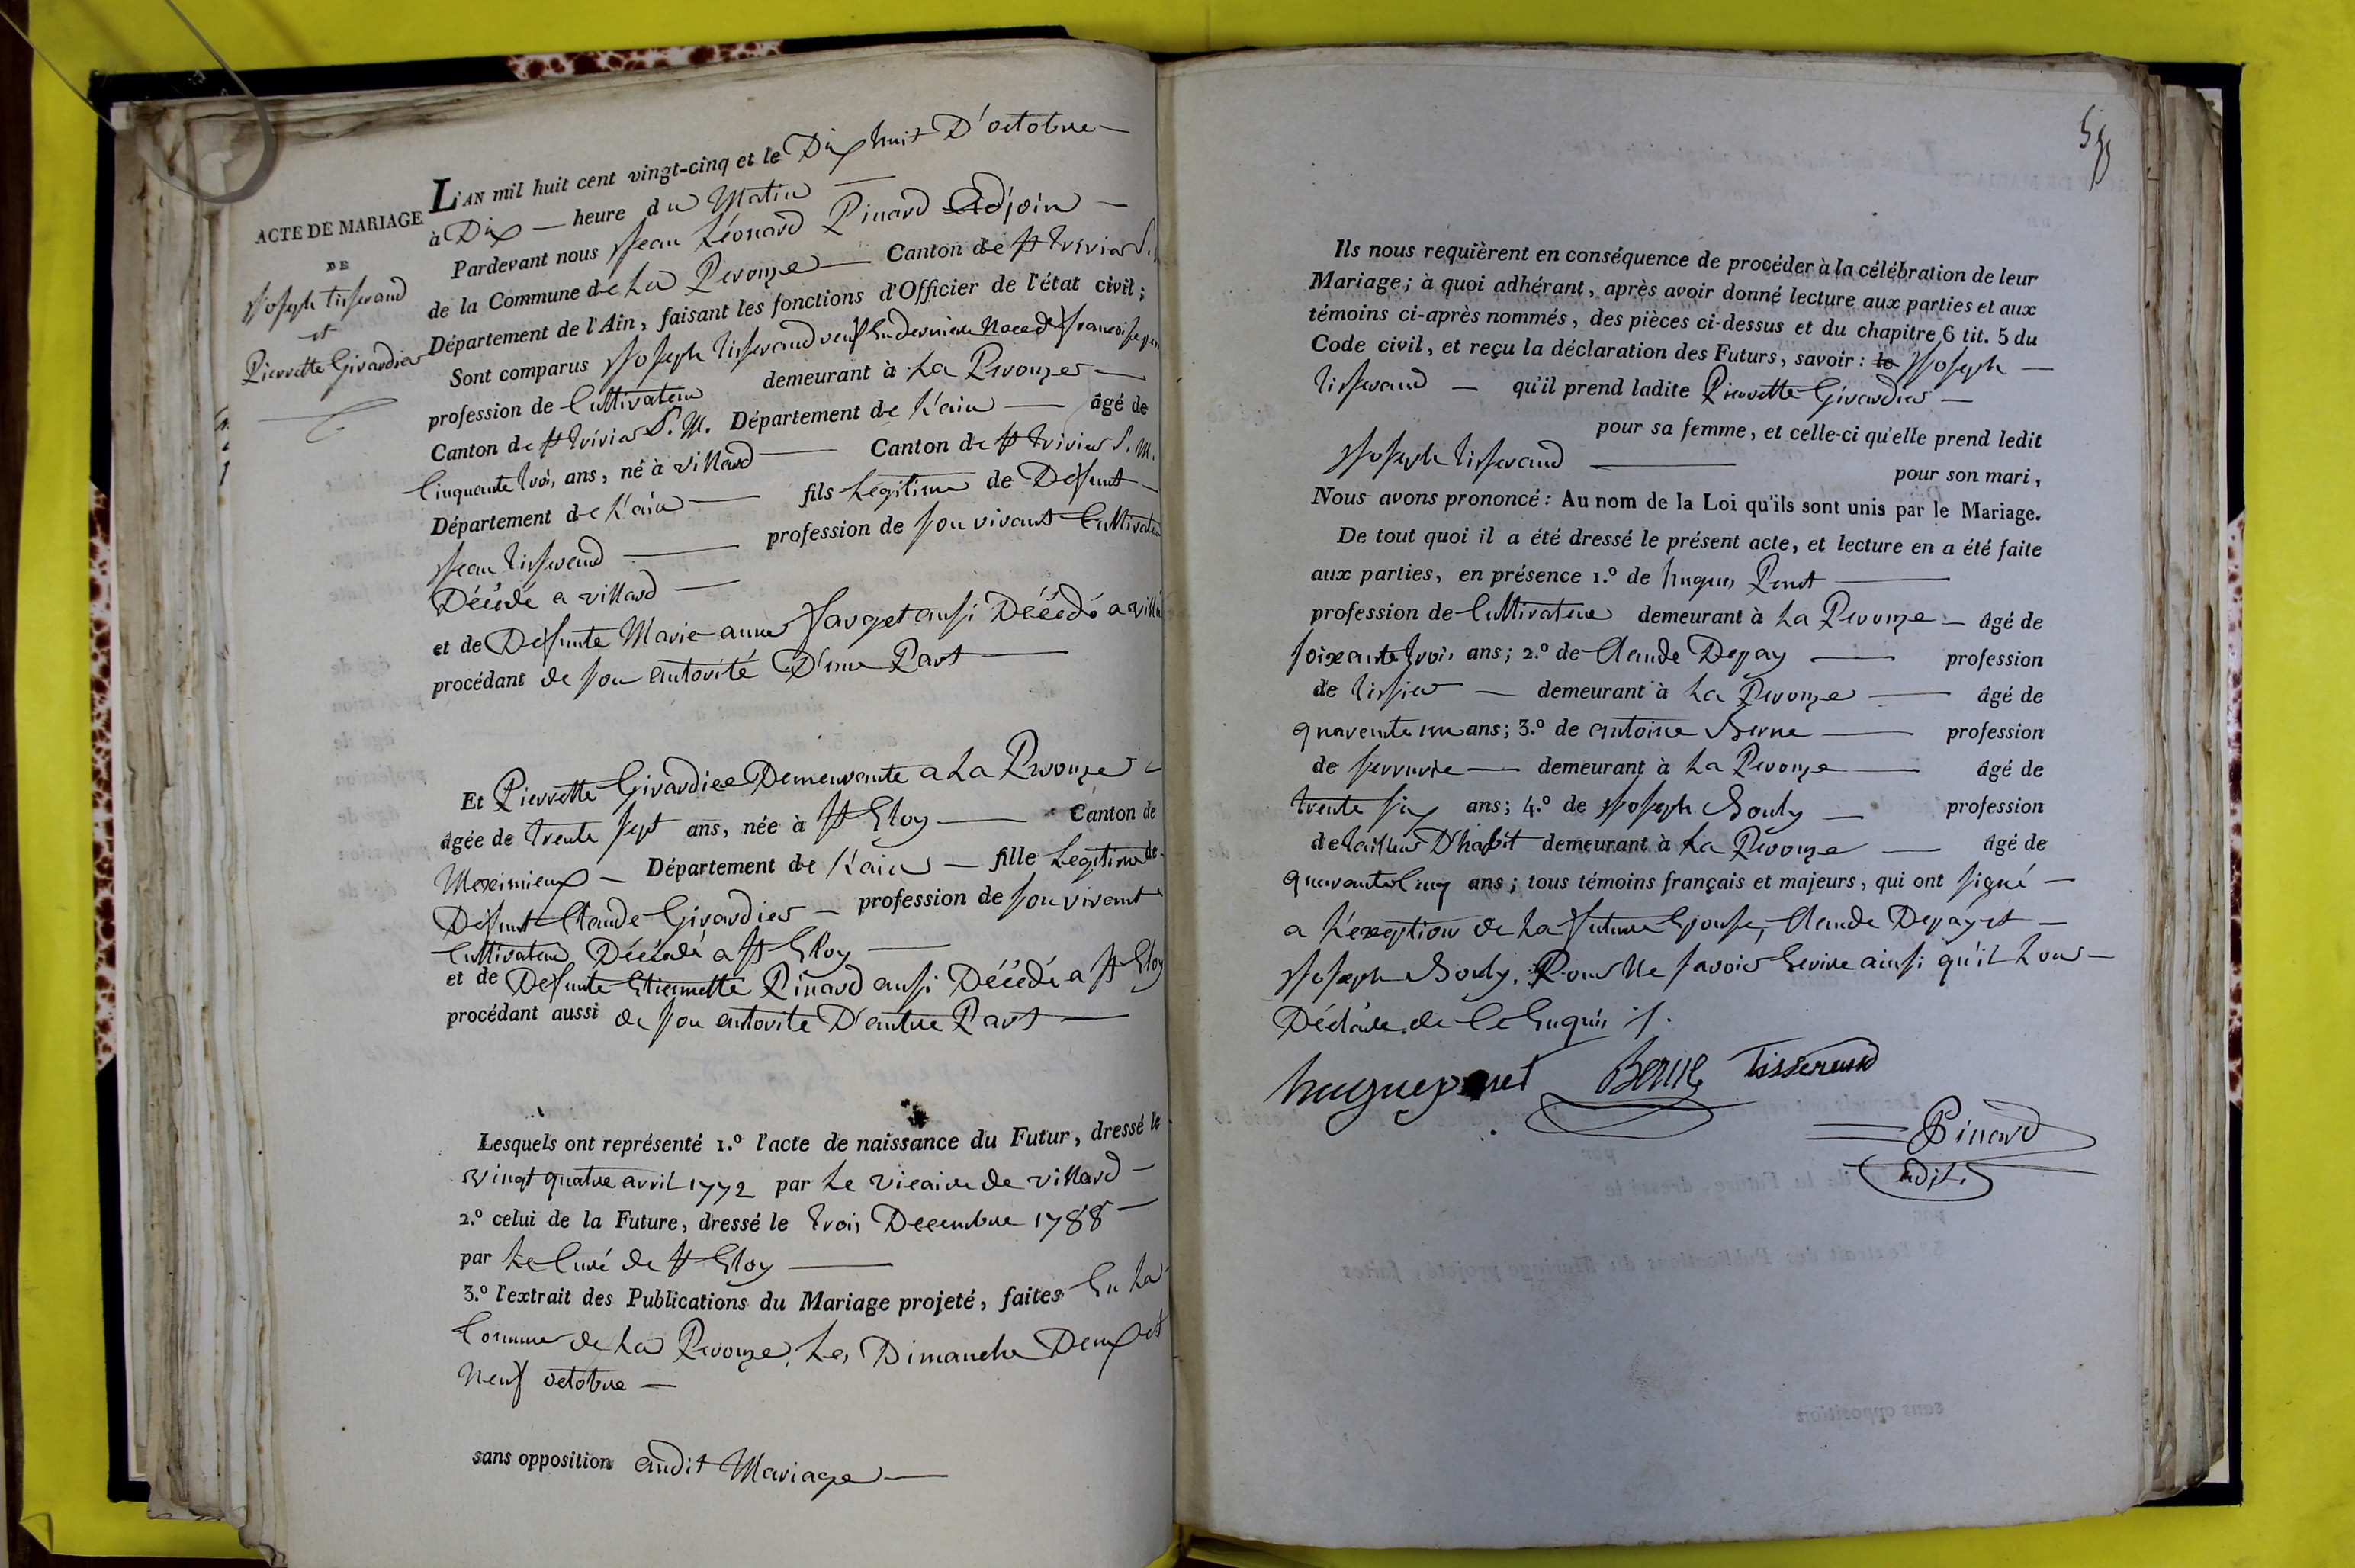 ACTE DE MARIAGE
DE
Joseph tisserand
et
Pierrette Girardier
L'AN mil huit cent vingt-cinq et le Dix huit D'octobre
à Dix heure du Matin
Pardevant nous Jean Léonard Pinard Adjoin
de la Commune de La Perouze Canton de St trivier S.
Département de l'Ain, faisant les fonctions d'Officier de l'état civil;
Sont comparus Joseph tisserand veuf En derniere Noce de francoise
profession de Cultivateur demeurant à La Perouze
Canton de St trivier S. M. Département de L'ain âgé de
Cinquante trois ans, né à villard Canton de St trivier S. M.
Département de L'ain fils Légitime de Defunt
Jean tisserand profession de Son vivant Cultivateur
Décédé a villard
et de Defunte Marie anne farget aussi Décédé a villard
procédant de Son autorité D'une Part
Et Pierrette Girardier Demeurante a La Perouze
âgée de trente Sept ans, née à St Eloy Canton de
Meximieux Département de L'ain fille Legitime de
Defunt Claude Girardier profession de Son vivant
Cultivateur Décédé a St Eloy
et de Defunte Etiennette Pinard aussi Décédé a St Eloy
procédant aussi de Son autorite D'autre Part
Lesquels ont représenté 1.º l'acte de naissance du Futur, dressé le
vingt quatre avril 1772 par Le vicaire de villard
2.º celui de la Future, dressé le trois Decembre 1788
par Le Curé de St Eloy
3.º l'extrait des Publications du Mariage projeté, faites En La
Commune de La Perouze, Les Dimanche Deux et
Neuf octobre
sans opposition audit Mariage
Ils nous requièrent en conséquence de procéder à la célébration de leur
Mariage; à quoi adhérant, après avoir donné lecture aux parties et aux
témoins ci-après nommés, des pièces ci-dessus et du chapitre 6 tit. 5 du
Code civil, et reçu la déclaration des Futurs, savoir: le Joseph
tisserand qu'il prend ladite Pierrette Girardier
pour sa femme, et celle-ci qu'elle prend ledit
Joseph tisserand
pour son mari,
Nous avons prononcé: Au nom de la Loi qu'ils sont unis par le Mariage.
De tout quoi il a été dressé le présent acte, et lecture en a été faite
aux parties, en présence 1.º de hugues Penet
profession de Cultivateur demeurant à La Perouze âgé de
Soixante trois ans; 2.º de Claude Depay profession
de tissier demeurant à La Perouze âgé de
quarente un ans; 3.º de antoine Berne profession
de Serrurie demeurant à La Perouze âgé de
trente Six ans; 4.º de Joseph Bouly profession
de tailleur D'habit demeurant à La Perouze âgé de
quarante Cinq ans; tous témoins français et majeurs, qui ont Signé
a L'exception de La future Epouse, Claude Depay et
Joseph Bouly, Pour Ne Savoir Ecrire ainsi qu'il L'ons
Déclare de Ce Enquis ./.
hugues penet Berne Tisserand
Pinard
adjt.